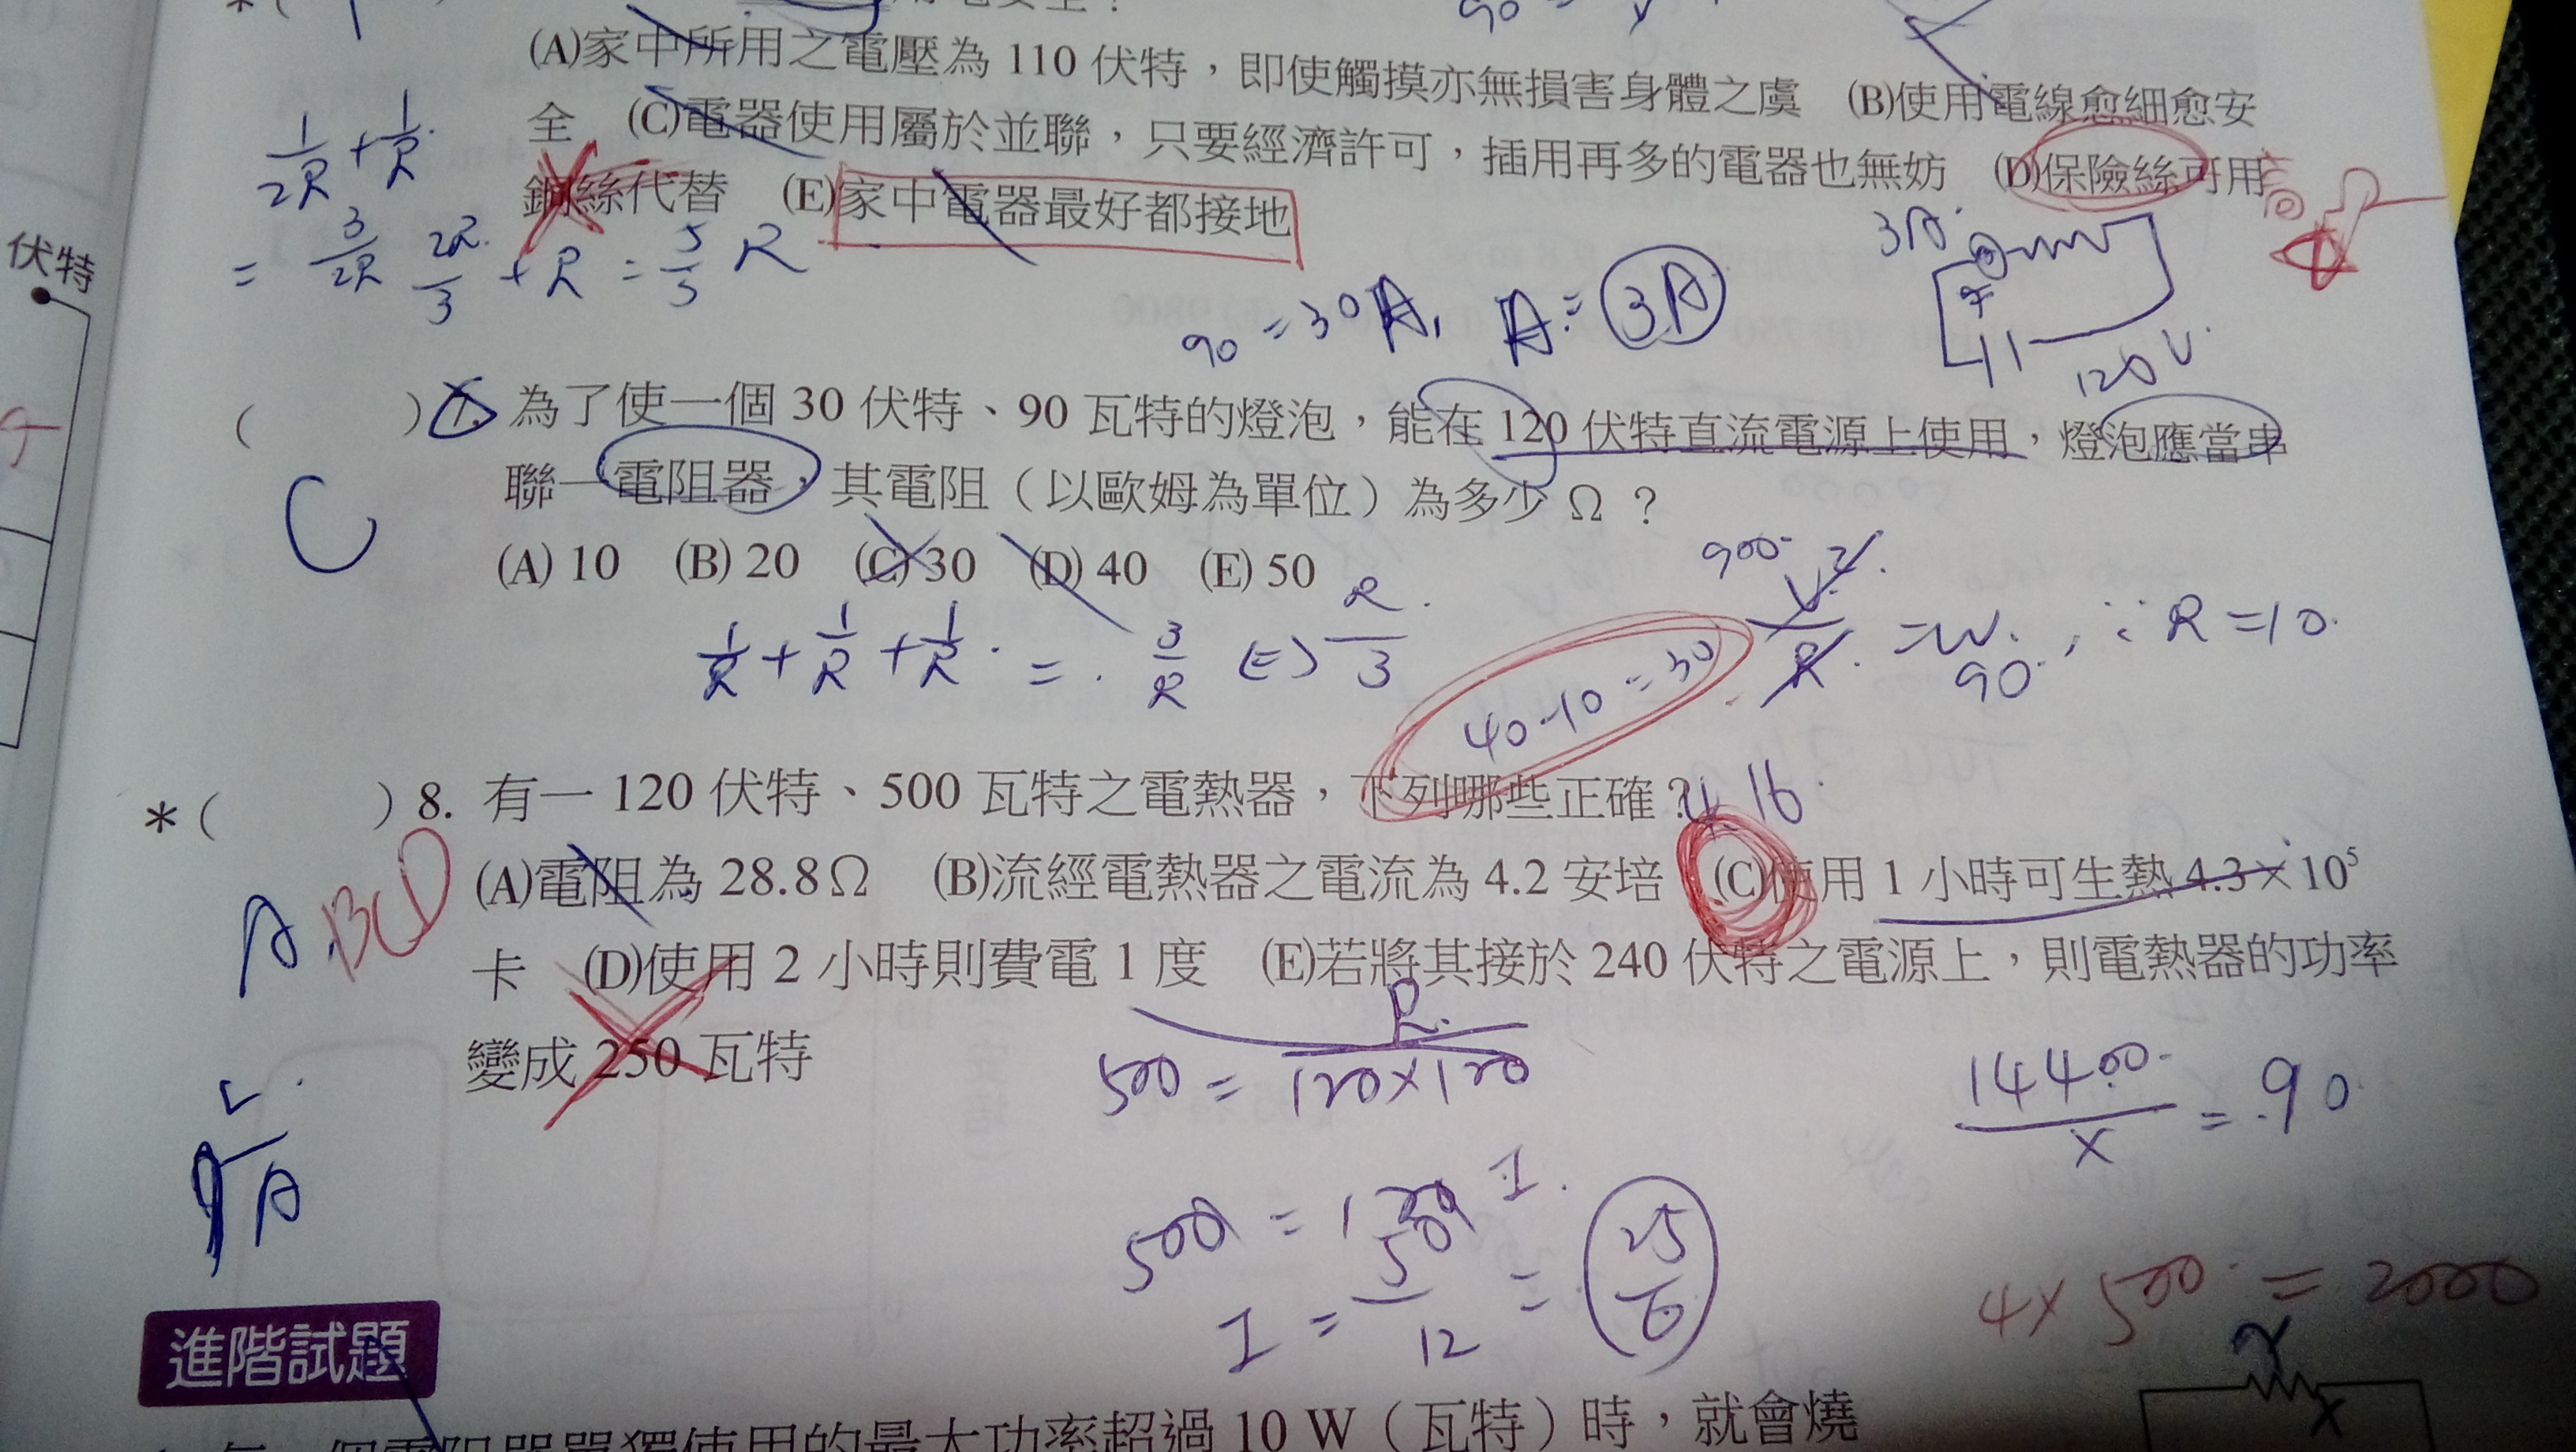 (A)家中所用之電壓為 110 伏特，即使觸摸亦無損害身體之虞 (B)使用電線愈細愈安
全 (C)電器使用屬於並聯，只要經濟許可，插用再多的電器也無妨 (D)保險絲可用
銅絲代替 (E)家中電器最好都接地
1/2R + 1/R
= 3/2R 2R/3 + R = 5/3 R
伏特
90 = 30A, A = 3A
3A
120V
( ) 7. 為了使一個 30 伏特、90 瓦特的燈泡，能在 120 伏特直流電源上使用，燈泡應當串
聯一電阻器，其電阻（以歐姆為單位）為多少 Ω ？
C
(A) 10 (B) 20 (C) 30 (D) 40 (E) 50
1/R + 1/R + 1/R = 3/R R/3
900 V²/R = W 90, ∴ R = 10
40-10=30
*( ) 8. 有一 120 伏特、500 瓦特之電熱器，下列哪些正確？
16
ABCD
(A)電阻為 28.8 Ω (B)流經電熱器之電流為 4.2 安培 (C)使用 1 小時可生熱 4.3×10⁵
卡 (D)使用 2 小時則費電 1 度 (E)若將其接於 240 伏特之電源上，則電熱器的功率
變成 250 瓦特
500 = R/120×120
14400/X = 90
500 = 120 I
I = 50/12 = 25/6
4×500 = 2000
進階試題
個電阻器單獨使用的最大功率超過 10 W（瓦特）時，就會燒
X